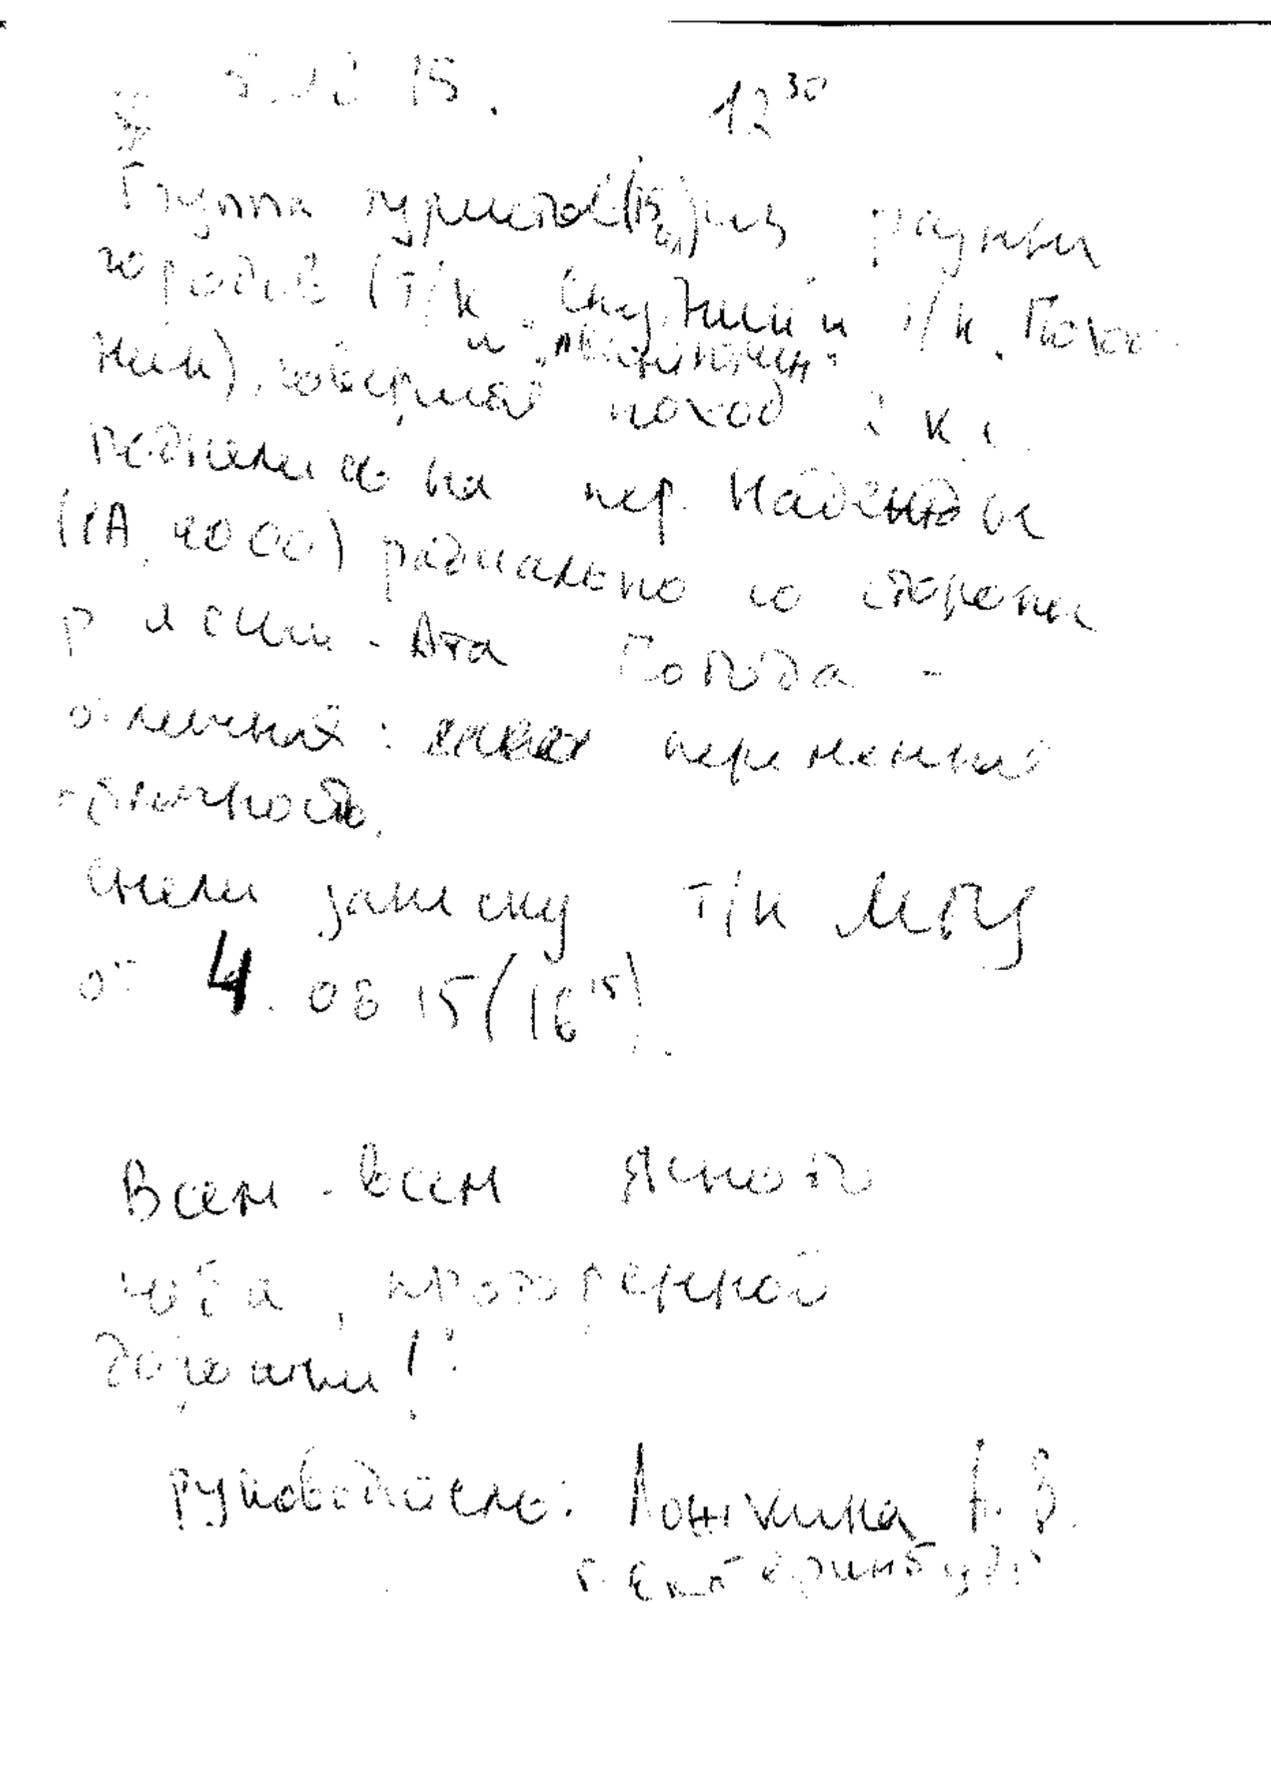 5.08 15. 12³⁰
Группа туристов (15 чл) из разных
городов (т/к "Спутник" и т/к "Поход
ник), совершая поход 2 к.с.
поднялись на пер. Надежды
(1А, 4000) радиально со стороны
р. Ат. Погода -
отличная: переменная
облачность.
Сняли записку т/к МГУ
от 4. 08 15 (16¹⁵).
Всем-всем ясного
неба, проторенной
дорожки!
руководитель: Ложкина А. В.
г. Екатеринбург